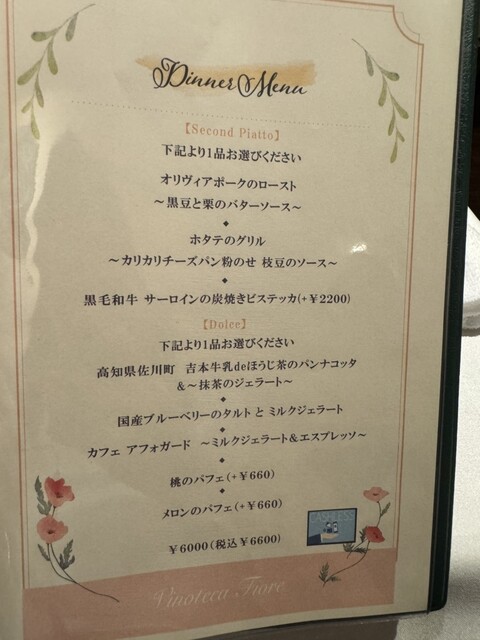 Dinner Menu
【Second Piatto】
下記より1品お選びください
オリヴィアポークのロースト
～黒豆と栗のバターソース～
ホタテのグリル
～カリカリチーズパン粉のせ 枝豆のソース～
黒毛和牛 サーロインの炭焼きビステッカ(+￥2200)
【Dolce】
下記より1品お選びください
高知県佐川町 吉本牛乳deほうじ茶のパンナコッタ
&～抹茶のジェラート～
国産ブルーベリーのタルト と ミルクジェラート
カフェ アフォガード ～ミルクジェラート&エスプレッソ～
桃のパフェ(+￥660)
メロンのパフェ(+￥660)
CASHLESS
￥6000(税込￥6600)
Vinoteca Fiore